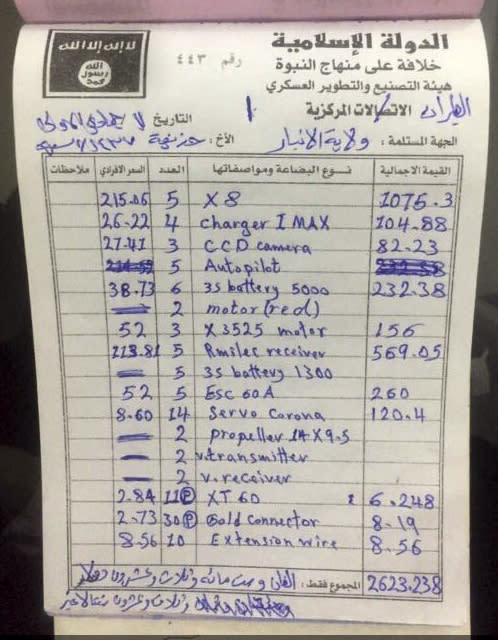 لا إله إلا الله
الله
رسول
محمد
الدولة الإسلامية
خلافة على منهاج النبوة
هيئة التصنيع والتطوير العسكري
الاتصالات المركزية
رقم ٤٤٣
التاريخ
الجهة المستلمة: ولاية الانبار الأخ:
القيمة الاجمالية نوع البضاعة ومواصفاتها العدد السعر الافرادي ملاحظات
215.06 5 X8 1075.3
26.22 4 charger I MAX 104.88
27.41 3 CCD camera 82.23
5 Autopilot
38.73 6 3s battery 5000 232.38
— 2 motor (red)
52 3 X3525 motor 156
113.81 5 Rmilec receiver 569.05
— 5 3s battery 1300
52 5 Esc 60A 260
8.60 14 Servo Corona 120.4
— 2 propeller 14X9.5
— 2 v.transmitter
— 2 v.receiver
2.84 11 P XT 60 6.248
2.73 30 P Gold connector 8.19
8.56 10 Extension wire 8.56
المجموع فقط: الفان وست مائة وثلاث وعشرون دولار 2623.238